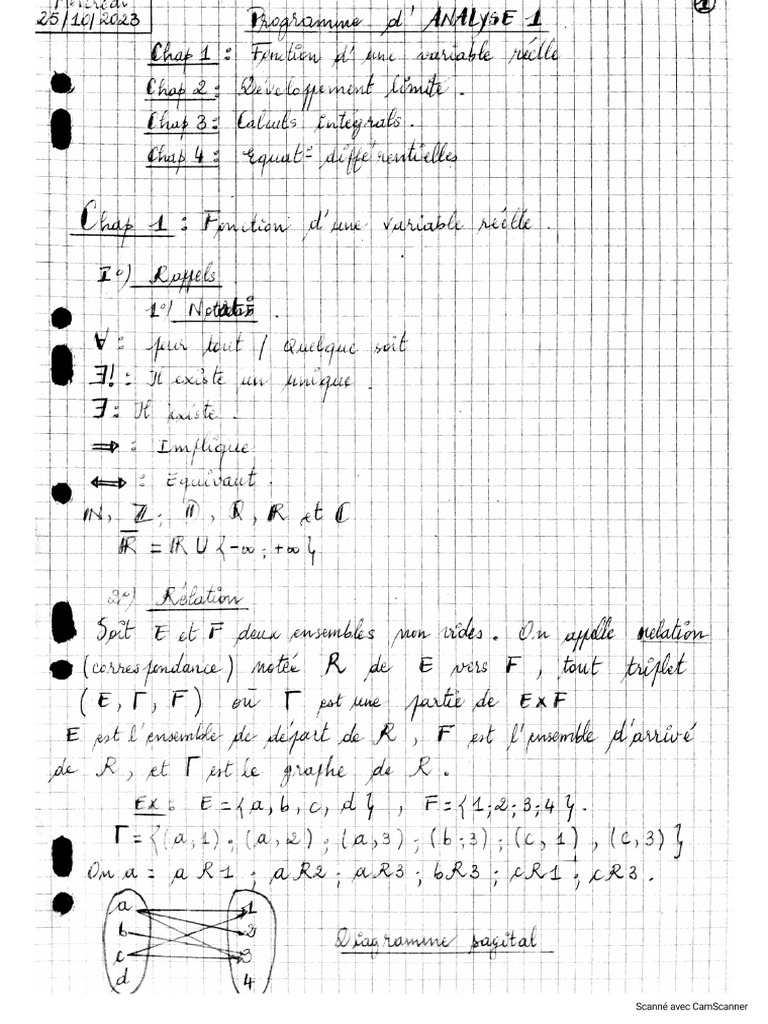 Mercredi
25/10/2023
Programme d'ANALYSE 1
1
Chap 1 : Fonction d'une variable réélle
Chap 2 : Développement limité.
Chap 3 : Calculs intégrals.
Chap 4 : Equat° différentielles
Chap 1 : Fonction d'une variable réélle.
I°) Rappels
1°) Notat°
∀ : pour tout / Quelque soit
∃! : Il existe un unique.
∃ : Il existe.
⇒ : Implique
⇔ : Equivaut.
ℕ, ℤ, 𝔻, ℚ, ℝ et ℂ
ℝ̅ = ℝ U {-∞ ; +∞}
2°) Rélation
Soit E et F deux ensembles non vides. On appelle relation
(correspondance) notée R de E vers F, tout triplet
(E, Γ, F) où Γ est une partie de E×F
E est l'ensemble de départ de R, F est l'ensemble d'arrivé
de R, et Γ est le graphe de R.
Ex : E = {a, b, c, d}, F = {1; 2; 3; 4}.
Γ = {(a,1). (a,2); (a,3); (b;3); (c,1), (c,3)}
On a = aR1 ; aR2 ; aR3 ; bR3 ; cR1 ; cR3.
a 1
b 2
c 3
d 4
Diagramme sagital
Scanné avec CamScanner